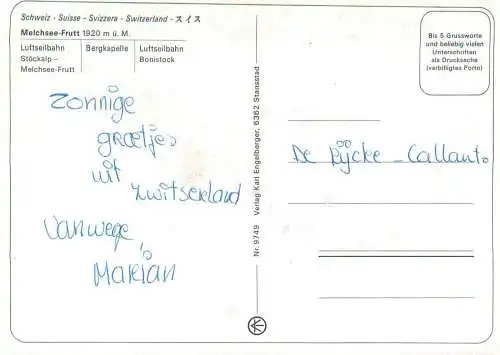 Schweiz - Suisse - Svizzera - Switzerland - スイス
Melchsee-Frutt 1920 m ü. M.
Luftseilbahn Stöckalp – Melchsee-Frutt
Bergkapelle
Luftseilbahn Bonistock
Bis 5 Grussworte
und beliebig vielen
Unterschriften
als Drucksache
(verbilligtes Porto)
Zonnige
groetjes
uit
Zwitserland
Vanwege,
Marian
Nr. 9749 Verlag Karl Engelberger, 6362 Stansstad
De Rijcke - Callant.